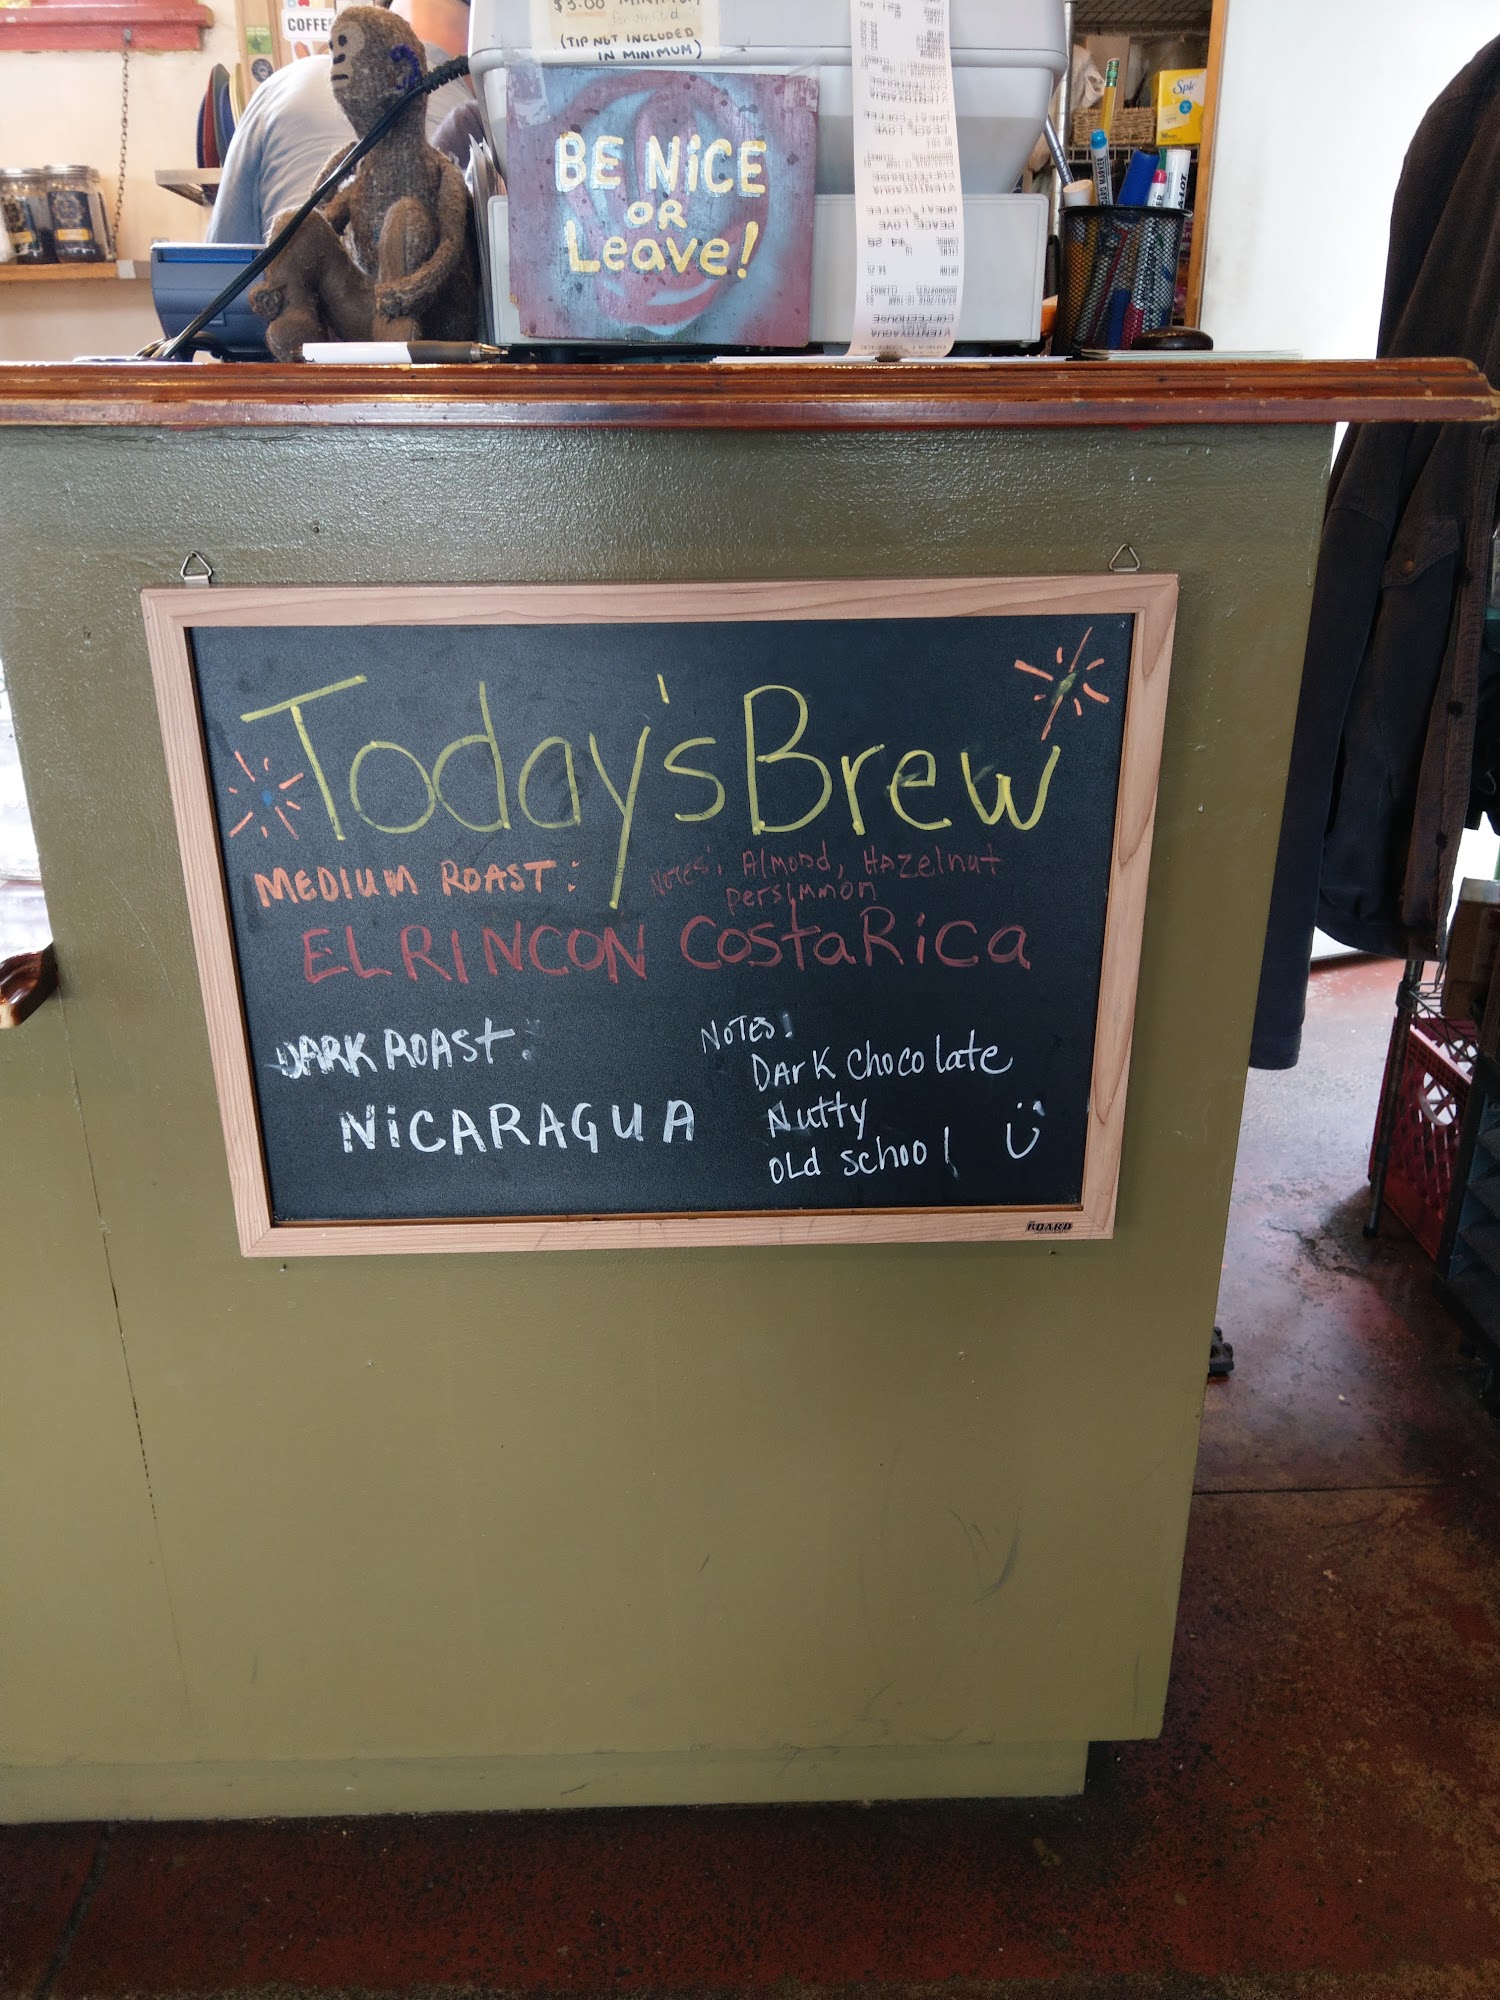 COFFEE
$5.00 MINIMUM
(TIP NOT INCLUDED
IN MINIMUM)
BE NiCE
OR
Leave!
GREAT COFFEE
PEACE LOVE
VIENTOYAGUA
COFFEEHOUSE
Today's Brew
MEDIUM ROAST:
Notes: Almond, Hazelnut
persimmon
EL RINCON Costa Rica
DARK ROAST:
NiCARAGUA
NoTES:
DArK chocolate
Nutty
OLd school
BOARD